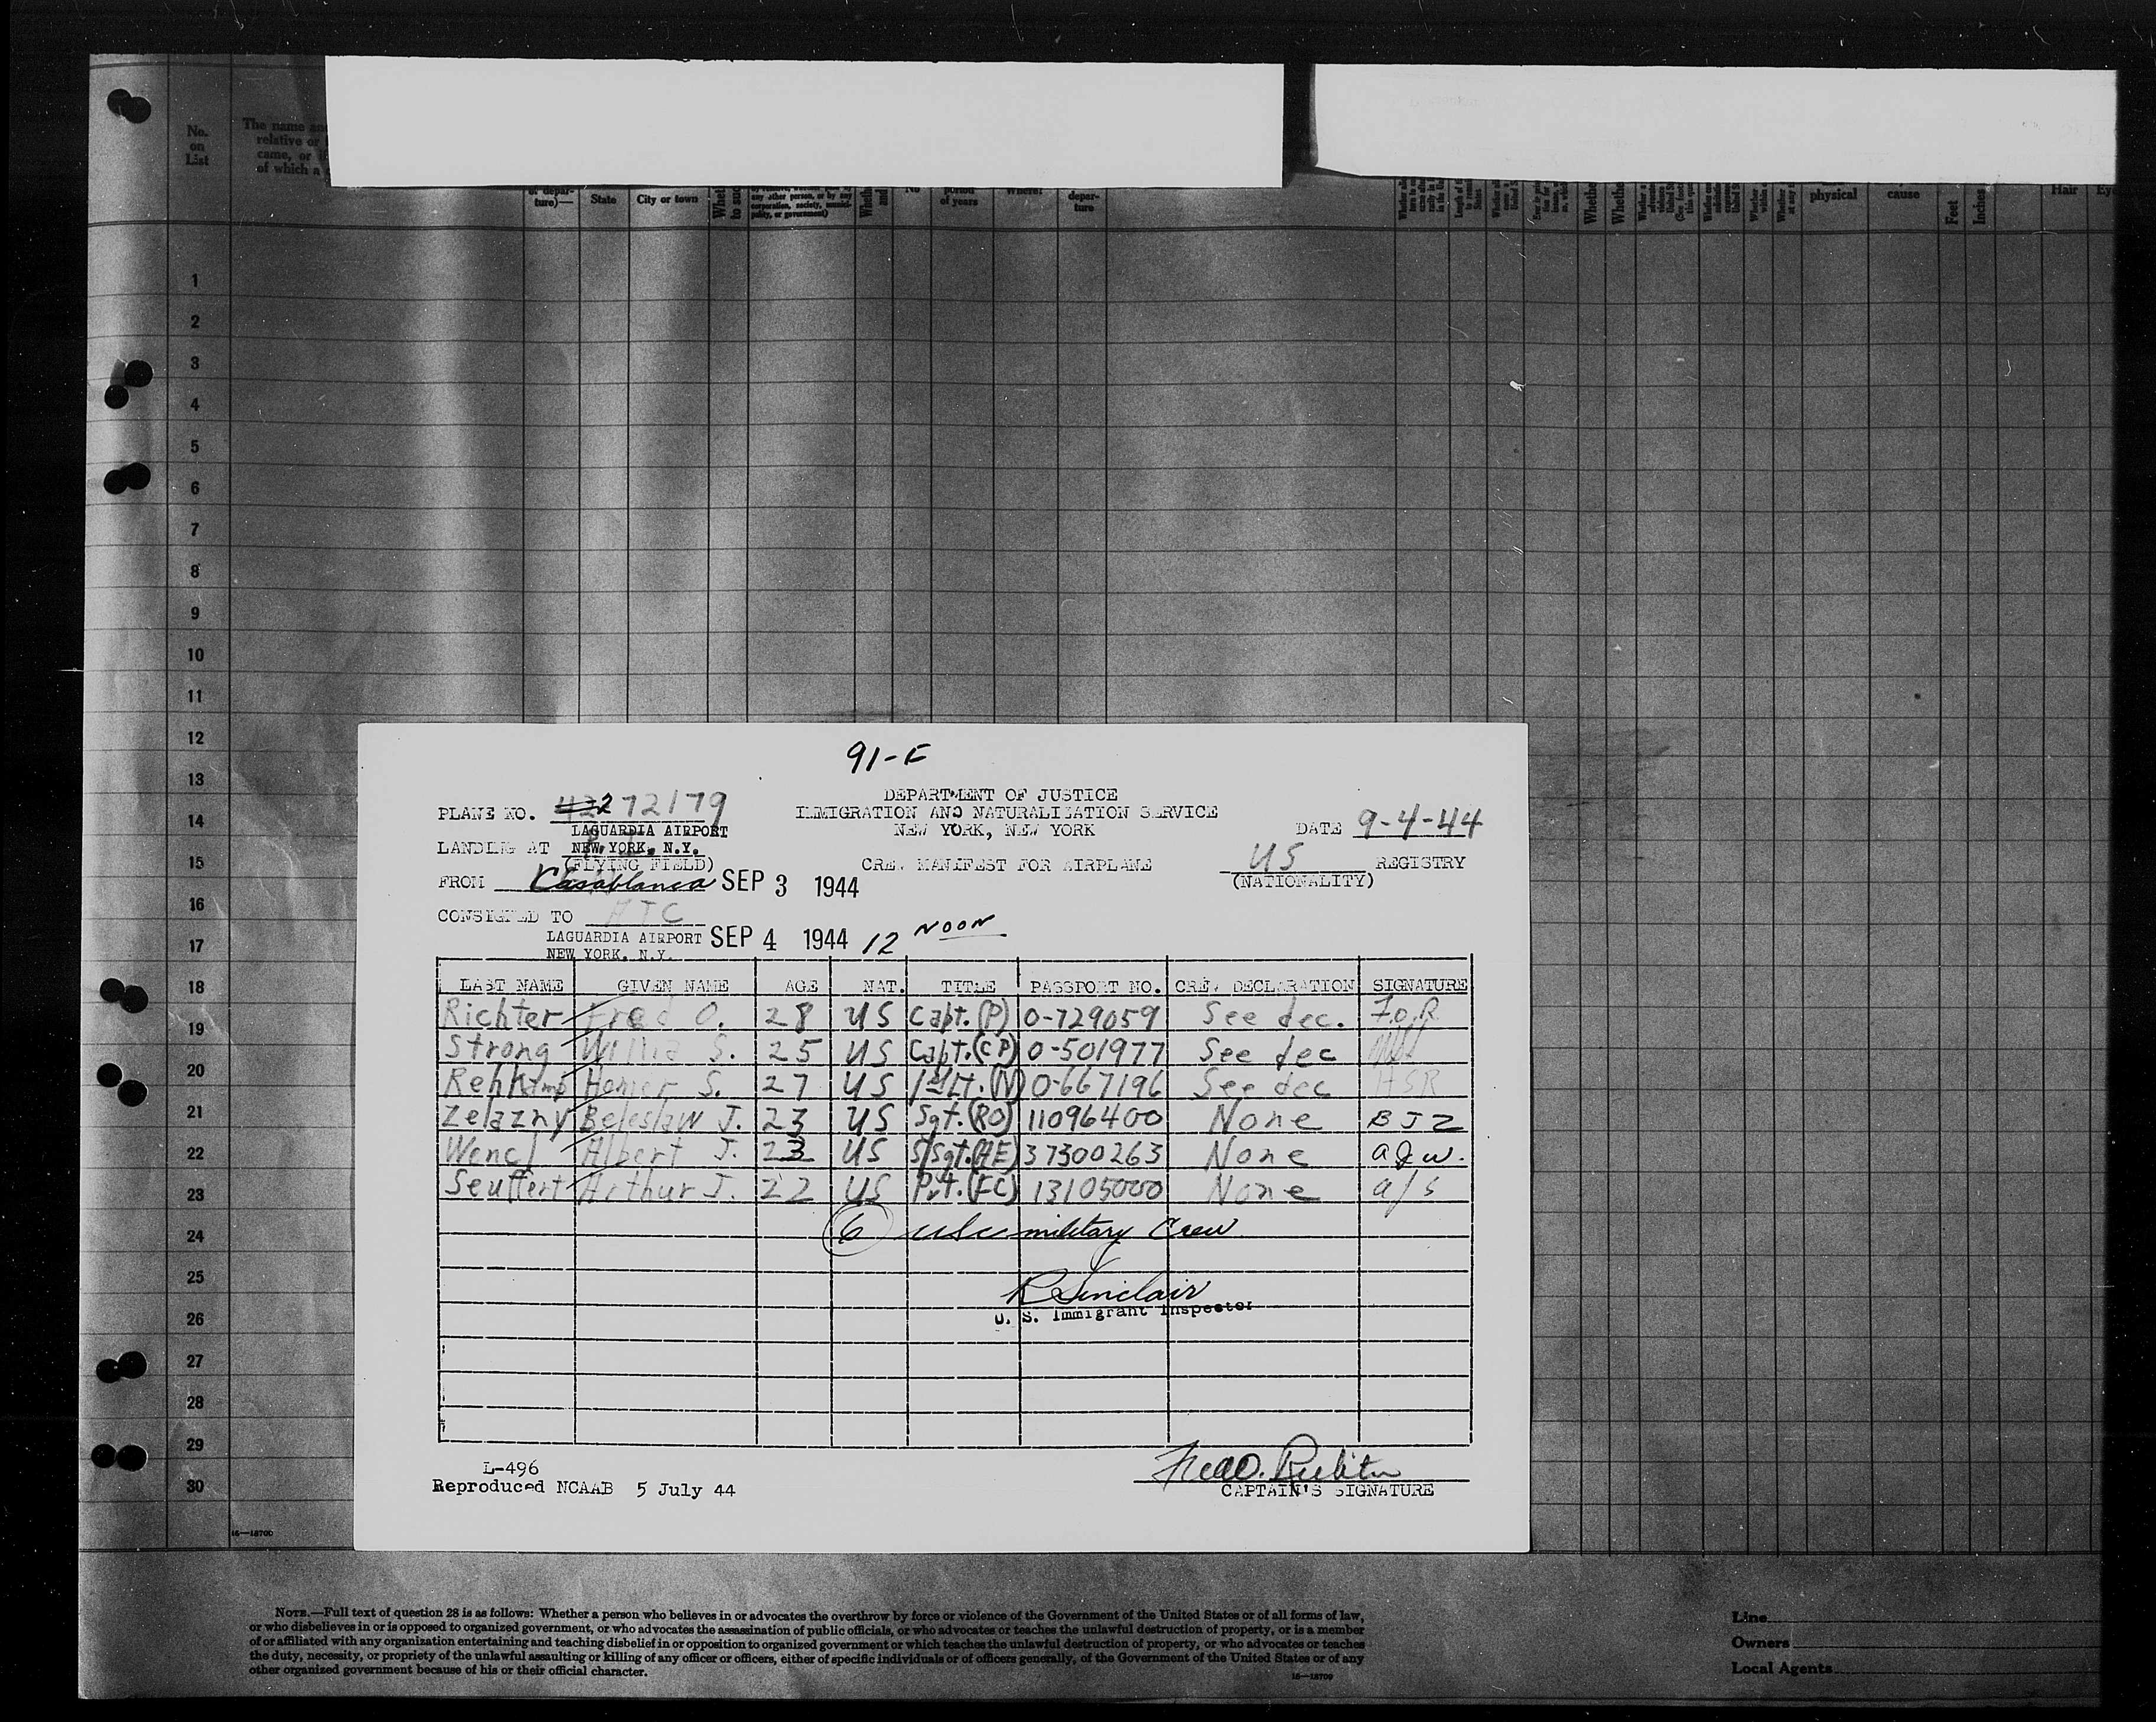 No.
on
List
The name
relative or
came, or
of which a
of depar-
ture)—
State
City or town
any other person, or by any
corporation, society, munici-
pality, or government)
No
period
of years
Where?
depar-
ture
physical
cause
Feet
Inches
Hair
1
2
3
4
5
6
7
8
9
10
11
12
13
14
15
16
17
18
19
20
21
22
23
24
25
26
27
28
29
30
91-F
DEPARTMENT OF JUSTICE
IMMIGRATION AND NATURALIZATION SERVICE
NEW YORK, NEW YORK
PLANE NO. 272179
LAGUARDIA AIRPORT
DATE 9-4-44
LANDING AT NEW YORK, N.Y.
(FLYING FIELD)
CREW MANIFEST FOR AIRPLANE
US REGISTRY
(NATIONALITY)
FROM Casablanca SEP 3 1944
CONSIGNED TO ATC
LAGUARDIA AIRPORT SEP 4 1944 12 NOON
NEW YORK, N.Y.
LAST NAME GIVEN NAME AGE NAT. TITLE PASSPORT NO. CREW DECLARATION SIGNATURE
Richter Fred O. 28 US Capt. (P) 0-729059 See dec. F.O.R.
Strong S. 25 US Capt. (CP) 0-501977 See dec
Rehkamp Homer S. 27 US 1st Lt. (N) 0-667196 See dec HSR
Zelazny Beleslaw J. 23 US Sgt. (RO) 11096400 None BJZ
Wencl Albert J. 23 US S/Sgt. (AE) 37300263 None a J w.
Seuffert Arthur J. 22 US Pvt. (FC) 13105000 None a/s
6 usc military Crew
R Sinclair
U. S. Immigrant Inspector
L-496
Reproduced NCAAB 5 July 44
Fred O. Richter
CAPTAIN'S SIGNATURE
16—18700
NOTE.—Full text of question 28 is as follows: Whether a person who believes in or advocates the overthrow by force or violence of the Government of the United States or of all forms of law,
or who disbelieves in or is opposed to organized government, or who advocates the assassination of public officials, or who advocates or teaches the unlawful destruction of property, or is a member
of or affiliated with any organization entertaining and teaching disbelief in or opposition to organized government or which teaches the unlawful destruction of property, or who advocates or teaches
the duty, necessity, or propriety of the unlawful assaulting or killing of any officer or officers, either of specific individuals or of officers generally, of the Government of the United States or of any
other organized government because of his or their official character.
16—18700
Line
Owners
Local Agents